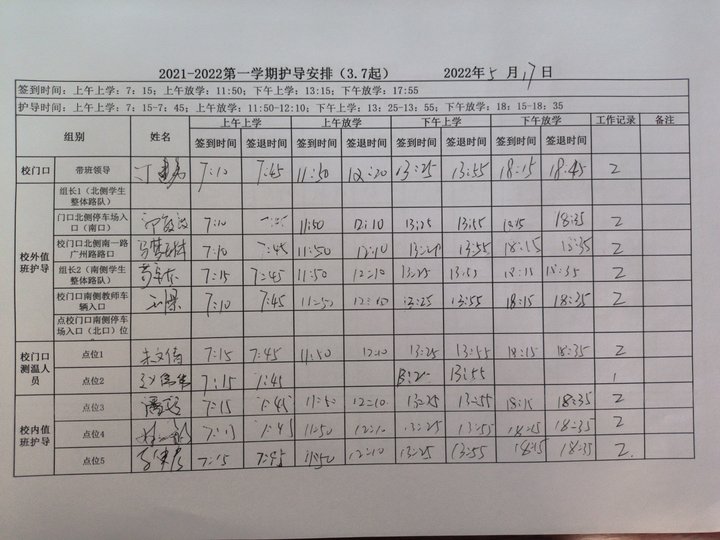 2021-2022第一学期护导安排（3.7起） 2022年5月17日
签到时间：上午上学：7：15；上午放学：11:50；下午上学：13:15；下午放学：17:55
护导时间：上午上学：7：15-7：45；上午放学：11:50-12:10；下午上学：13：25-13：55；下午放学：18：15-18：35
组别 姓名 上午上学 上午放学 下午上学 下午放学 工作记录 备注
签到时间 签退时间 签到时间 签退时间 签到时间 签退时间 签到时间 签退时间
校门口 带班领导 7:10 7:45 11:50 12:20 13:25 13:55 18:15 18:45 2
校外值班护导
组长1（北侧学生
整体路队）
门口北侧停车场入
口（南口） 7:10 11:50 12:10 13:25 13:55 18:35 2
校门口北侧南一路
广州路路口 7:10 7:45 11:50 12:10 13:55 18:15 18:35 2
组长2（南侧学生
整体路队） 7:15 7:45 11:50 12:10 13:25 18:15 18:35 2
校门口南侧教师车
辆入口 7:10 7:45 11:50 12:10 13:25 13:55 18:15 18:35 2
点校门口南侧停车
场入口（北口）位
校门口测温人员
点位1 7:15 7:45 11:50 12:10 13:25 13:55 18:15 18:35 2
点位2 7:15 7:45 13:55 1
校内值班护导
点位3 7:15 7:45 11:50 12:10 13:25 13:55 18:15 18:35 2
点位4 7:15 7:45 11:50 12:10 13:25 13:55 18:15 18:35 2
点位5 7:15 7:45 11:50 12:10 13:25 13:55 18:15 18:35 2